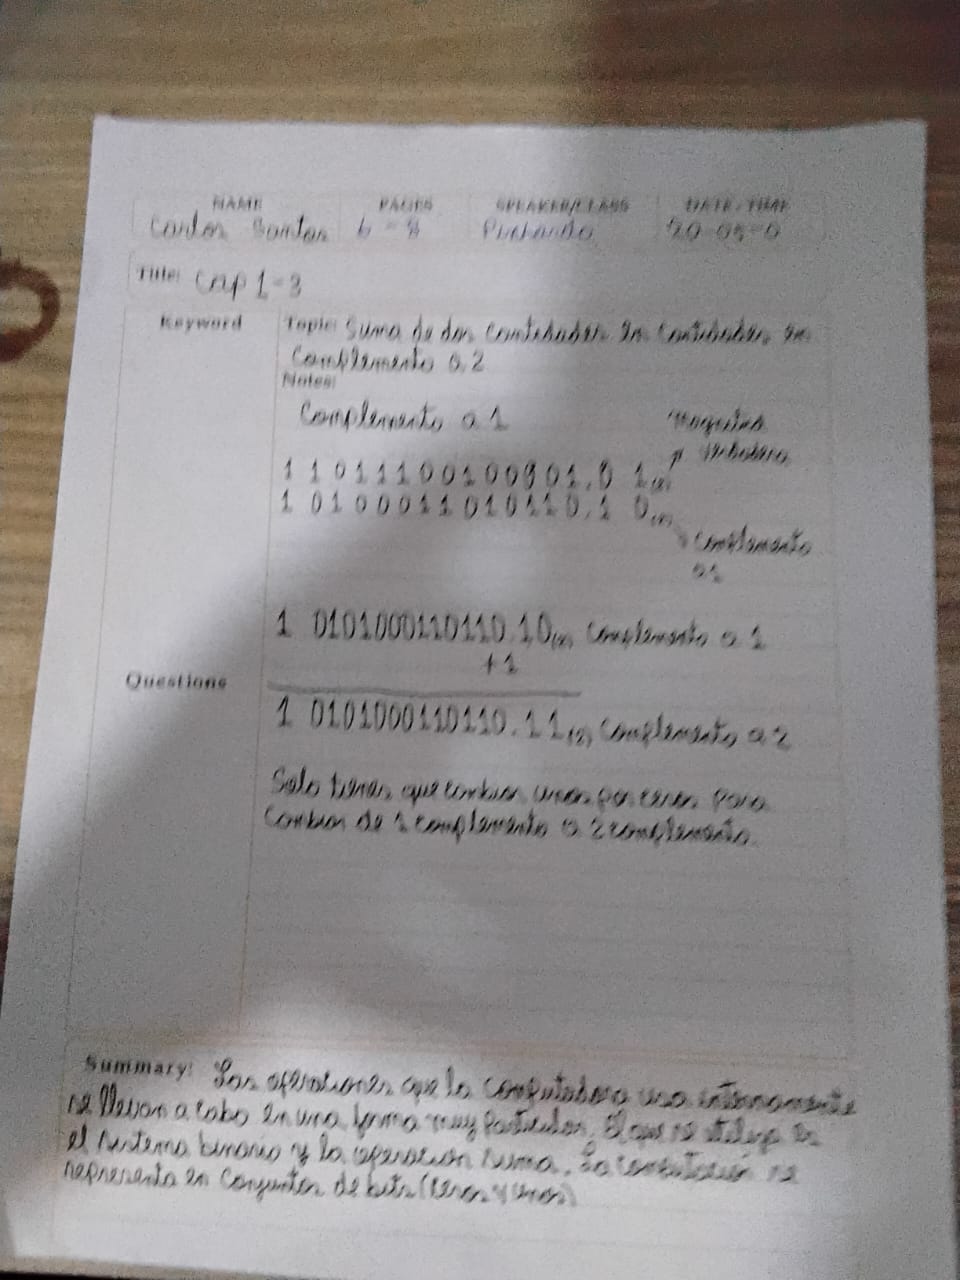 NAME PAGES SPEAKER/CLASS DATE-TIME
Carlos Santos 6 - 8 Pichardo
Title: Cap 1-3
Keyword Topic: Suma de dos cantidades en
Complemento a 2
Notes:
Complemento a 1
Magnitud
verdadera
1 1 0 1 1 1 0 0 1 0 0 0 0 1 . 0 1 (2)
1 0 1 0 0 0 1 1 0 1 0 1 1 0 . 1 0 (2)
Complemento
a 1
1 0101000110110.10(2) Complemento a 1
+1
Questions
1 0101000110110.11(2) Complemento a 2
Solo tienes que cambiar unos por ceros para
cambiar de 1 complemento a 2 complemento.
Summary: Las operaciones que la computadora usa internamente
se llevan a cabo en una forma muy particular, El que se utiliza es
el sistema binario y la operación suma. La computación se
representa en conjuntos de bits (Ceros y Unos)